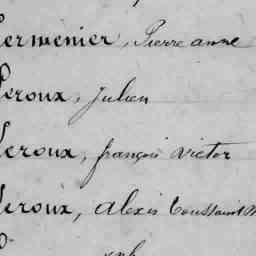 Lermenier, Pierre anne
Leroux, Julien
Leroux, françois victor
Leroux, alexis Toussaint